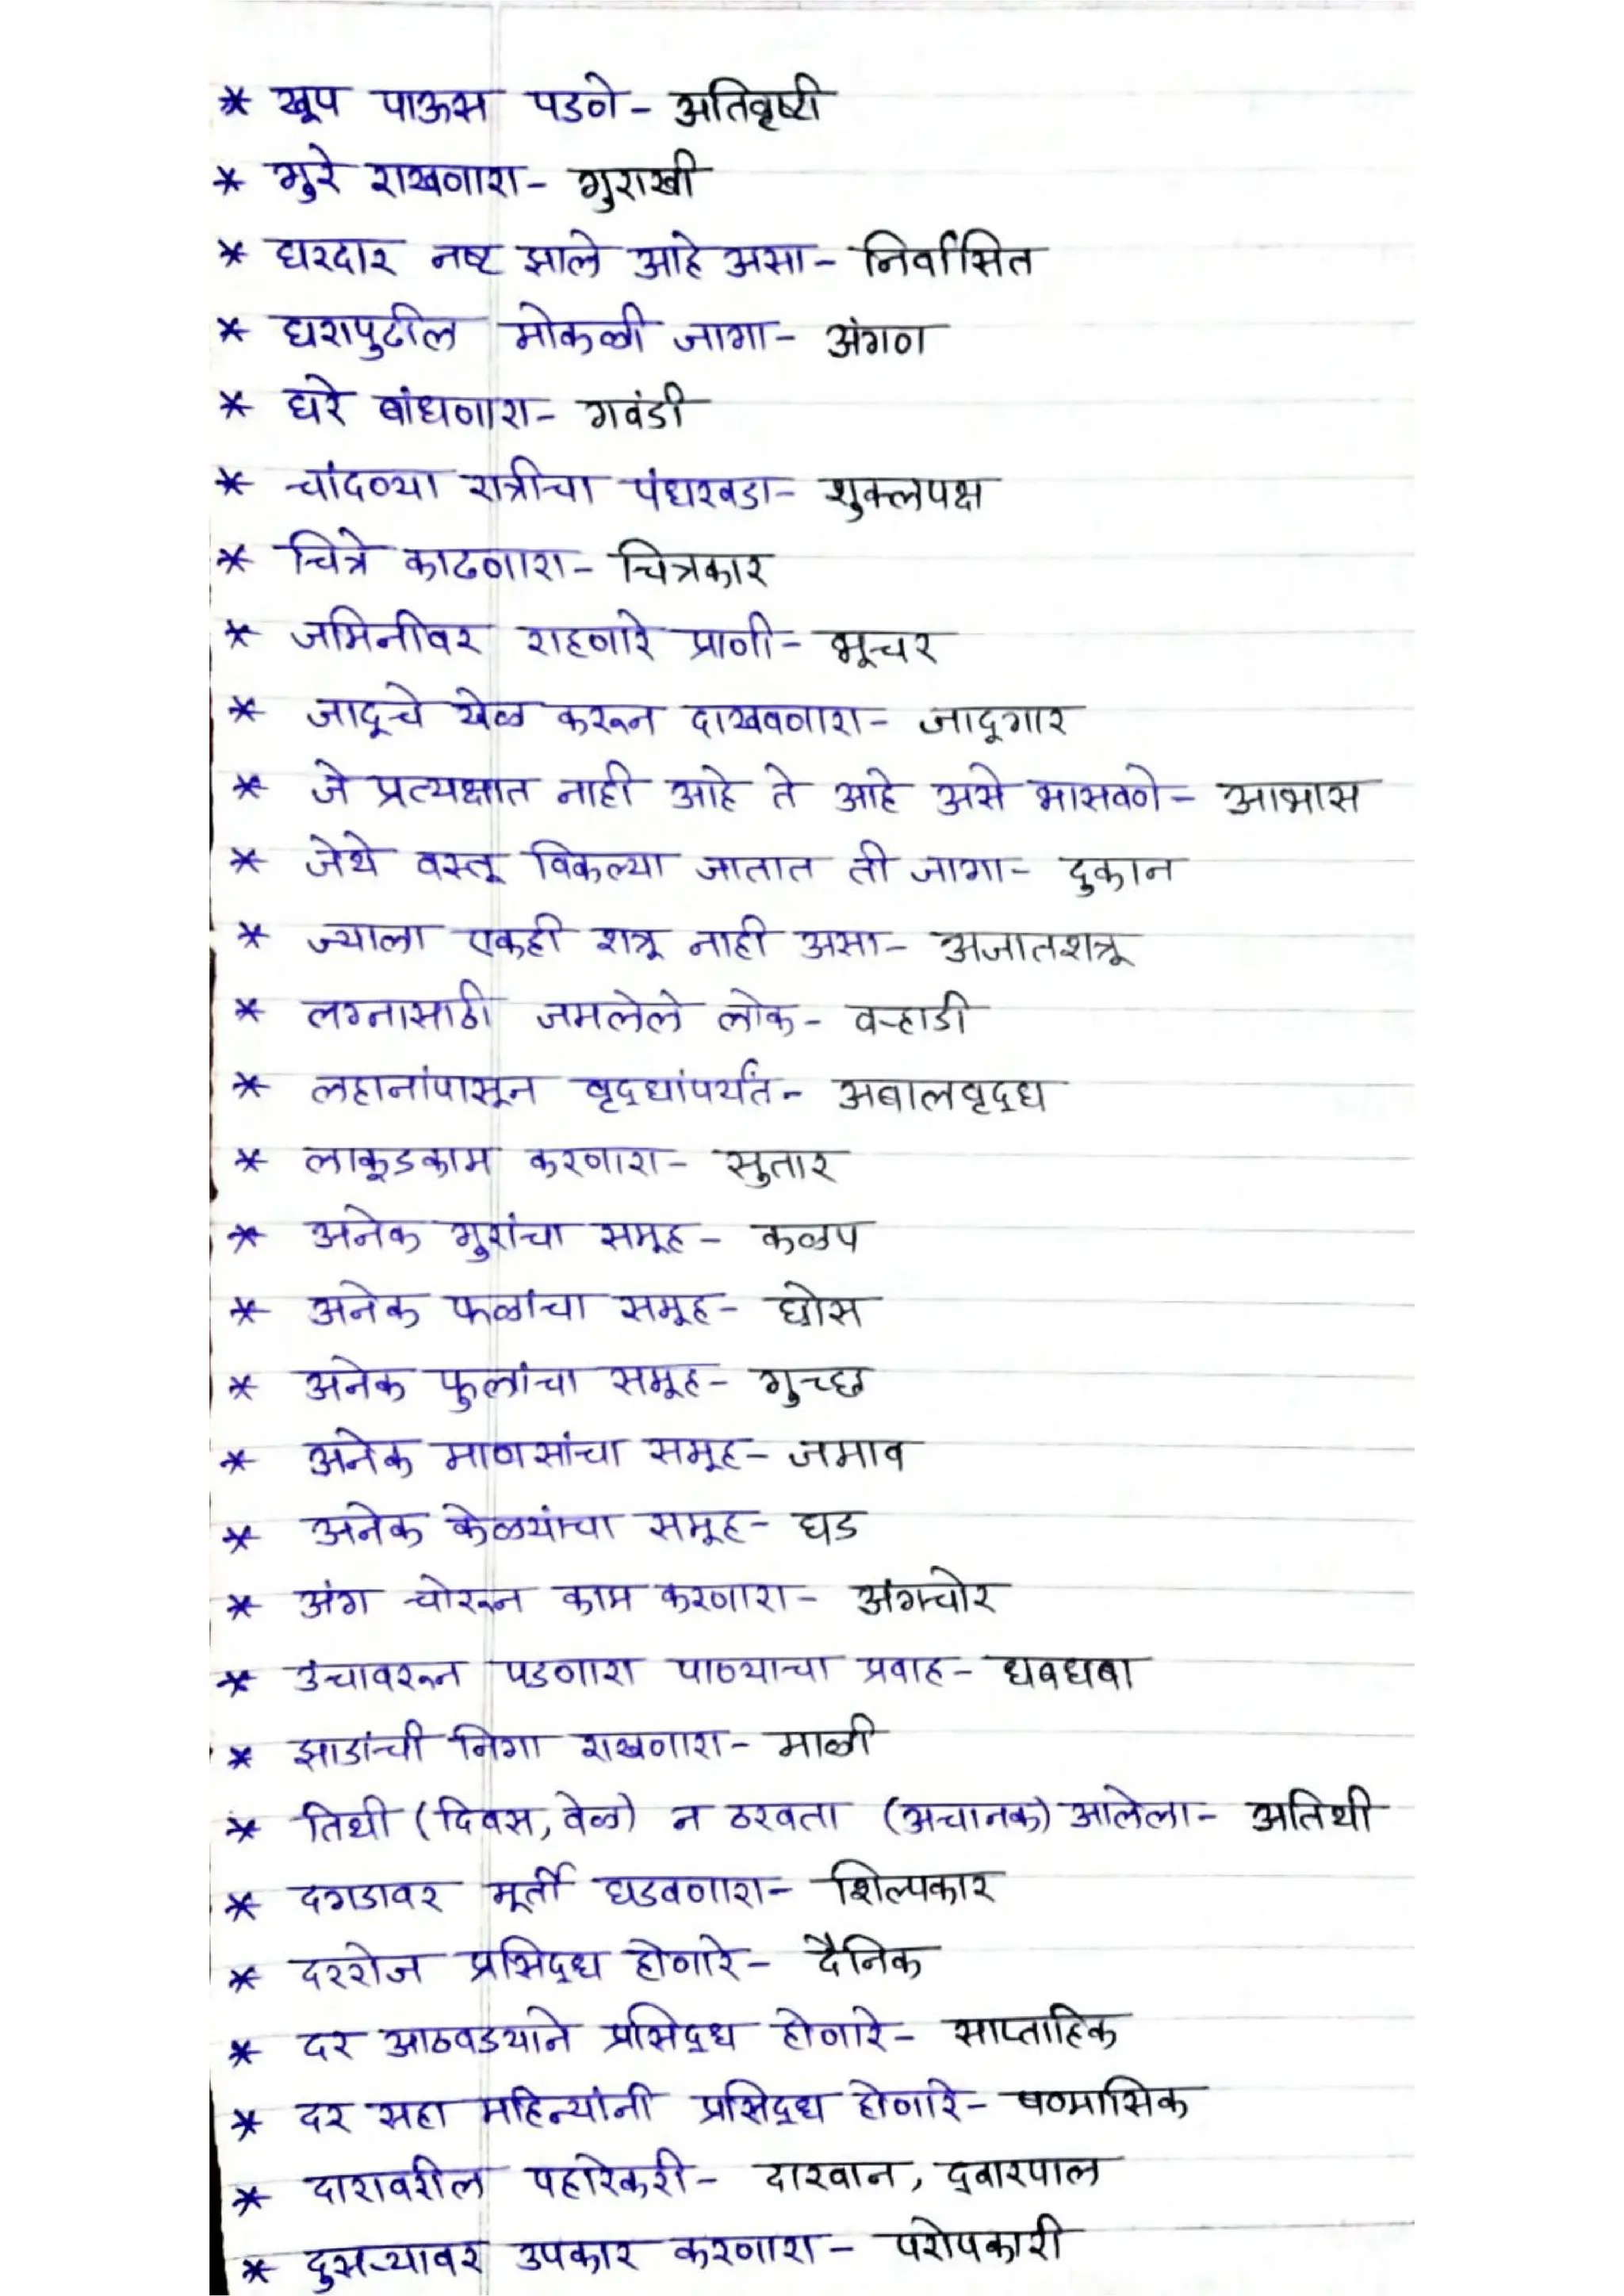 * खूप पाऊस पडणे - अतिवृष्टी
* गुरे राखणारा - गुराखी
* घरदार नष्ट झाले आहे असा - निर्वासित
* घरापुढील मोकळी जागा - अंगण
* घरे बांधणारा - गवंडी
* चांदण्या रात्रीचा पंधरवडा - शुक्लपक्ष
* चित्रे काढणारा - चित्रकार
* जमिनीवर राहणारे प्राणी - भूचर
* जादूचे खेळ करून दाखवणारा - जादूगार
* जे प्रत्यक्षात नाही आहे ते आहे असे भासवणे - आभास
* जेथे वस्तू विकल्या जातात ती जागा - दुकान
* ज्याला एकही शत्रू नाही असा - अजातशत्रू
* लग्नासाठी जमलेले लोक - वऱ्हाडी
* लहानांपासून वृद्धांपर्यंत - अबालवृद्ध
* लाकूडकाम करणारा - सुतार
* अनेक गुरांचा समूह - कळप
* अनेक फळांचा समूह - घोस
* अनेक फुलांचा समूह - गुच्छ
* अनेक माणसांचा समूह - जमाव
* अनेक केळ्यांचा समूह - घड
* अंग चोरून काम करणारा - अंगचोर
* उंचावरून पडणारा पाण्याचा प्रवाह - धबधबा
* झाडांची निगा राखणारा - माळी
* तिथी (दिवस, वेळ) न ठरवता (अचानक) आलेला - अतिथी
* दगडावर मूर्ती घडवणारा - शिल्पकार
* दररोज प्रसिद्ध होणारे - दैनिक
* दर आठवड्याने प्रसिद्ध होणारे - साप्ताहिक
* दर सहा महिन्यांनी प्रसिद्ध होणारे - षण्मासिक
* दारावरील पहारेकरी - दारवान, द्वारपाल
* दुसऱ्यावर उपकार करणारा - परोपकारी